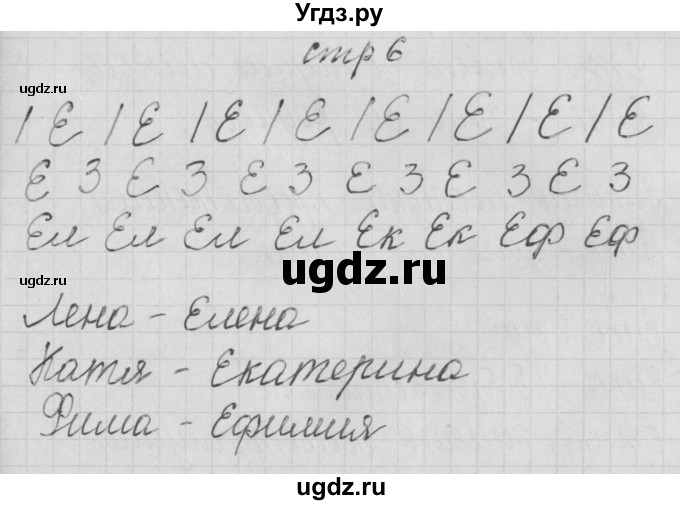 Угдз.ру
стр 6
ugdz.ru
/ Е / Е / Е / Е / Е / Е / Е / Е
ugdz.ru
Е З Е З Е З Е З Е З Е З
Ел Ел Ел Ел Ек Ек Еф Еф
ugdz.ru
ugdz.ru
Лена - Елена
Катя - Екатерина
Фима - Ефимия
ugdz.ru
ugdz.ru